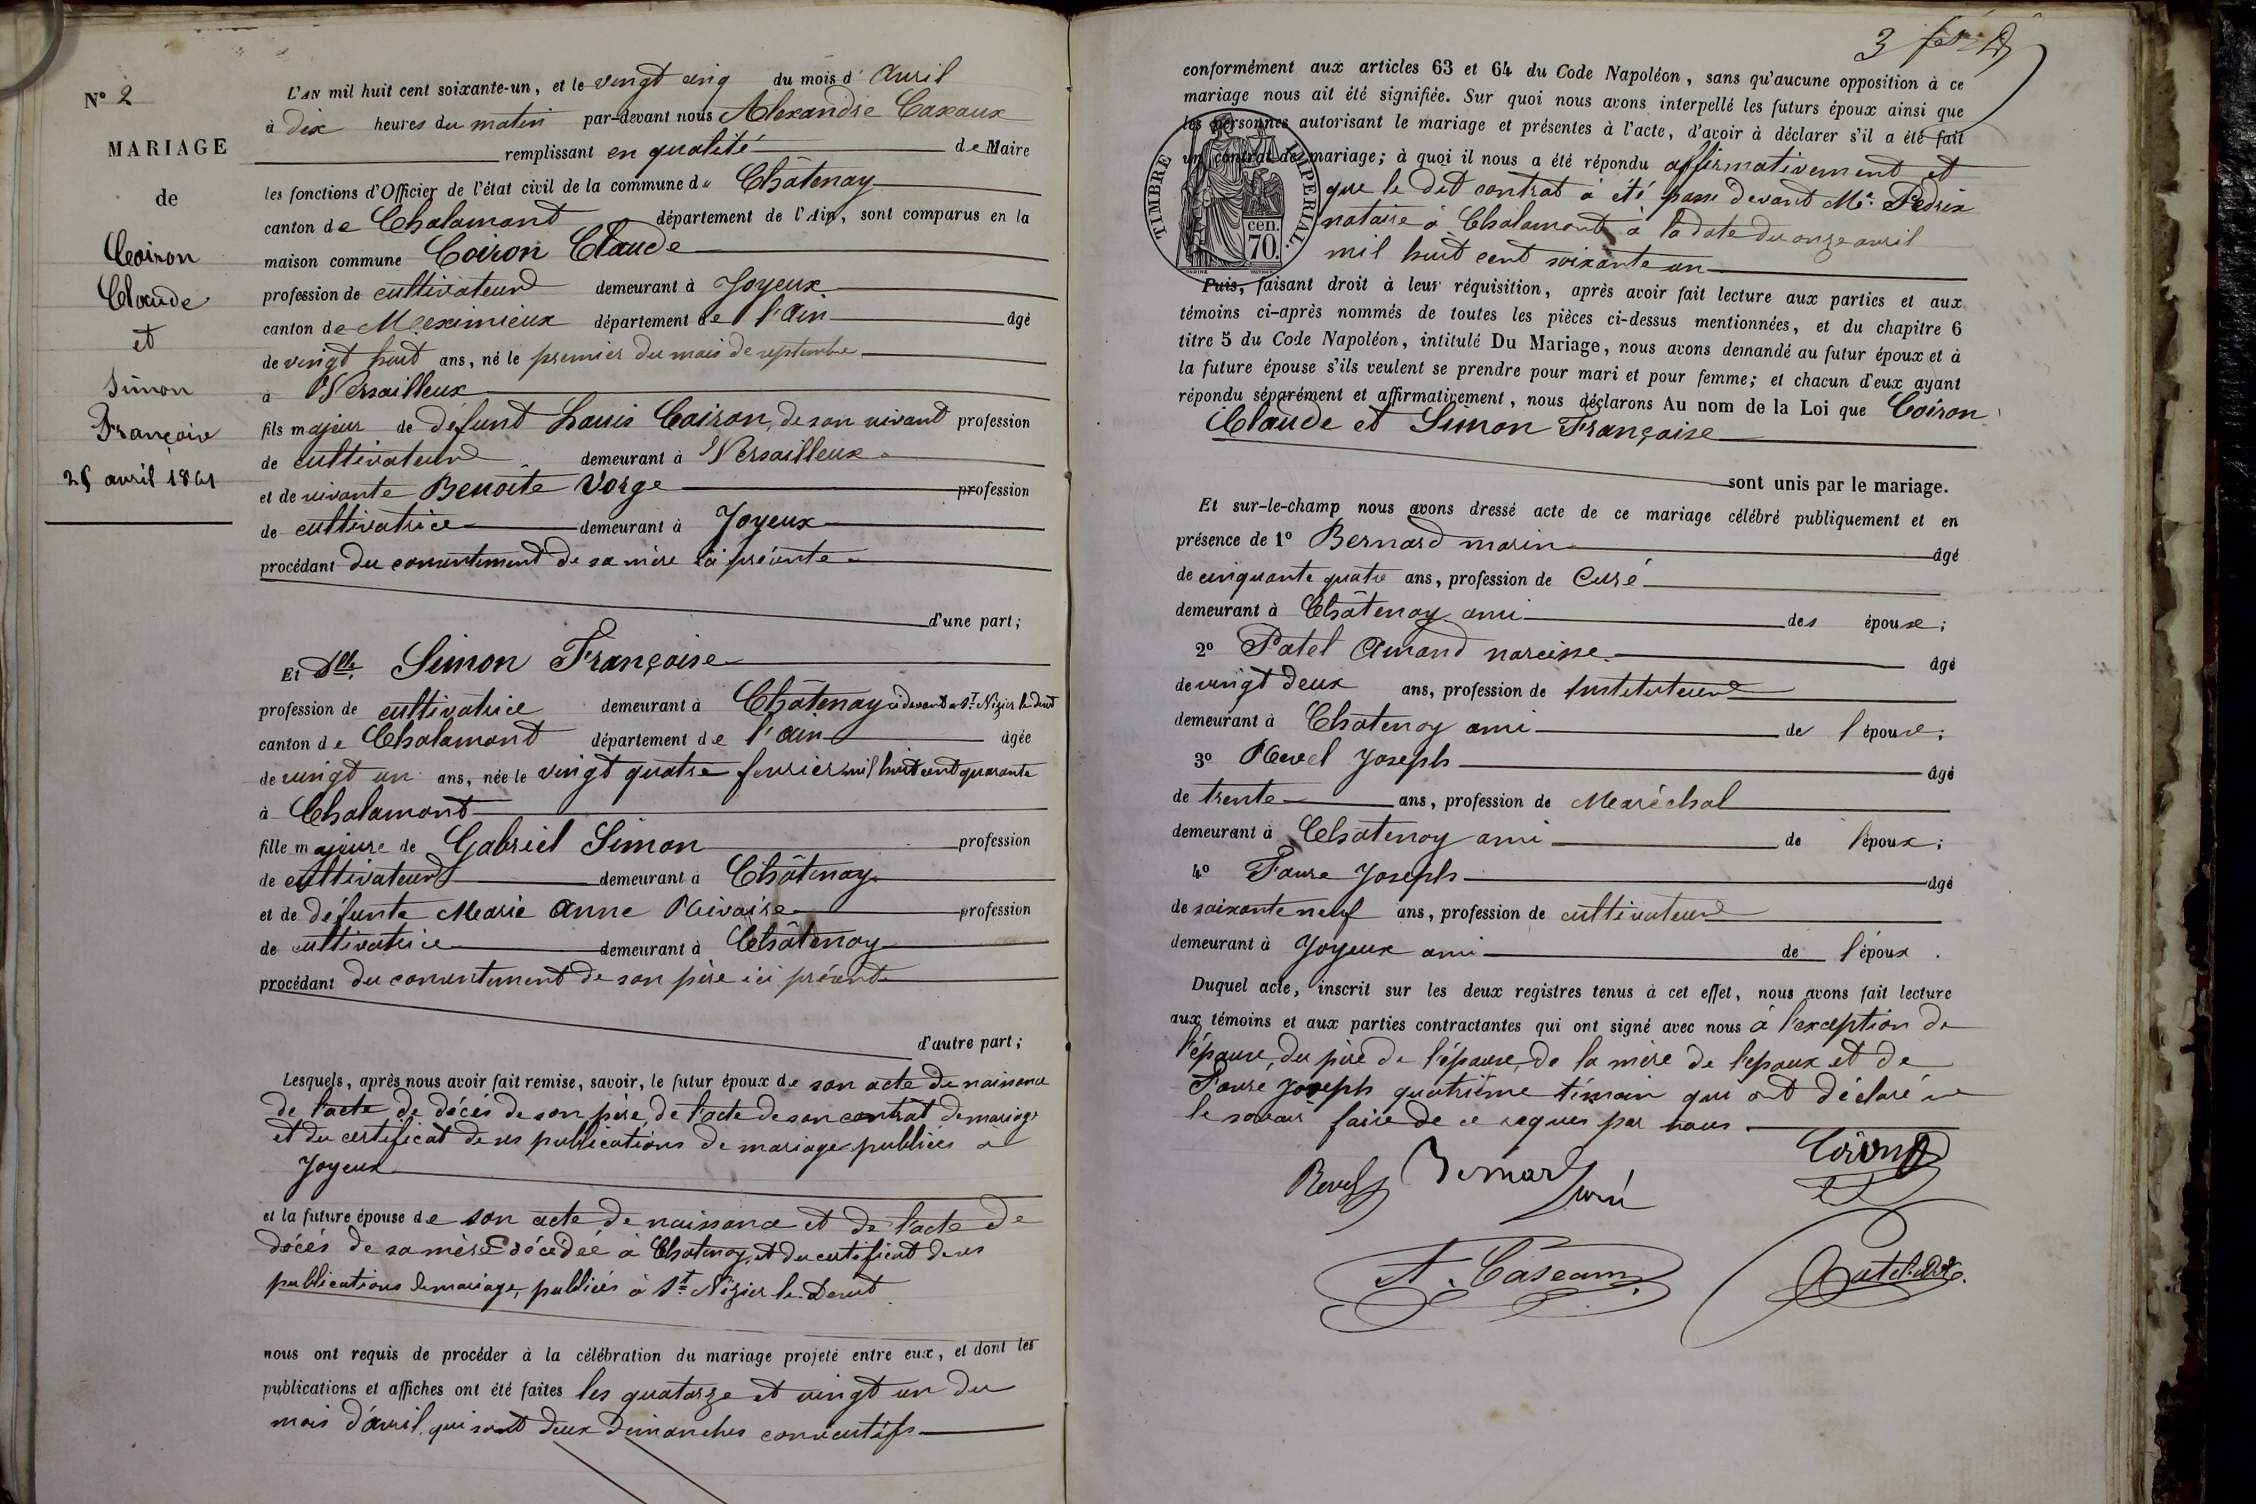 N° 2
MARIAGE
de
Coiron
Claude
et
Simon
Françoise
25 avril 1861
L'AN mil huit cent soixante-un, et le vingt cinq du mois d'Avril
à dix heures du matin par-devant nous Alexandre Caseaux
remplissant en qualité de Maire
les fonctions d'Officier de l'état civil de la commune de Châtenay
canton de Chalamont département de l'Ain, sont comparus en la
maison commune Coiron Claude
profession de cultivateur demeurant à Joyeux
canton de Meximieux département de l'Ain âgé
de vingt huit ans, né le premier du mois de septembre
à Versailleux
fils majeur de défunt Louis Coiron, de son vivant profession
de cultivateur demeurant à Versailleux
et de vivante Benoîte Vorge profession
de cultivatrice demeurant à Joyeux
procédant du consentement de sa mère là présente
d'une part;
Et Dlle Simon Françoise
profession de cultivatrice demeurant à Châtenay ci devant à St Nizier le desert
canton de Chalamont département de l'Ain âgée
de vingt un ans, née le vingt quatre fevrier mil huit cent quarante
à Chalamont
fille majeure de Gabriel Simon profession
de cultivateur demeurant à Châtenay
et de défunte Marie Anne Rivoire profession
de cultivatrice demeurant à Châtenay
procédant du consentement de son père ici présent
d'autre part;
Lesquels, après nous avoir fait remise, savoir, le futur époux de son acte de naissance
de l'acte de décès de son père, de l'acte de son contrat de mariage
et du certificat de ses publications de mariage publiées à
Joyeux
et la future épouse de son acte de naissance et de l'acte de
décès de sa mère décédée à Chatenay, et du certificat de ses
publications de mariage, publiées à St Nizier le Desert
nous ont requis de procéder à la célébration du mariage projeté entre eux, et dont les
publications et affiches ont été faites les quatorze et vingt un du
mois d'avril, qui sont deux dimanches consécutifs
3
conformément aux articles 63 et 64 du Code Napoléon, sans qu'aucune opposition à ce
mariage nous ait été signifiée. Sur quoi nous avons interpellé les futurs époux ainsi que
les personnes autorisant le mariage et présentes à l'acte, d'avoir à déclarer s'il a été fait
un contrat de mariage; à quoi il nous a été répondu affirmativement et
que le dit contrat à été passé devant Me Pedrix
notaire à Chalamont à la date du onze avril
mil huit cent soixante un
TIMBRE IMPERIAL.
cen.
70.
Puis, faisant droit à leur réquisition, après avoir fait lecture aux parties et aux
témoins ci-après nommés de toutes les pièces ci-dessus mentionnées, et du chapitre 6
titre 5 du Code Napoléon, intitulé Du Mariage, nous avons demandé au futur époux et à
la future épouse s'ils veulent se prendre pour mari et pour femme; et chacun d'eux ayant
répondu séparément et affirmativement, nous déclarons Au nom de la Loi que Coiron
Claude et Simon Françoise
sont unis par le mariage.
Et sur-le-champ nous avons dressé acte de ce mariage célébré publiquement et en
présence de 1° Bernard marin âgé
de cinquante quatre ans, profession de Curé
demeurant à Châtenay ami des époux;
2° Patel Amand narcisse âgé
de vingt deux ans, profession de Instituteur
demeurant à Chatenay ami de l'épouse;
3° Revel Joseph âgé
de trente ans, profession de Maréchal
demeurant à Chatenay ami de l'époux;
4° Faure Joseph âgé
de soixante neuf ans, profession de cultivateur
demeurant à Joyeux ami de l'époux.
Duquel acte, inscrit sur les deux registres tenus à cet effet, nous avons fait lecture
aux témoins et aux parties contractantes qui ont signé avec nous à l'exception de
l'épouse, du père de l'épouse, de la mère de l'epoux et de
Faure Joseph quatrième témoin qui ont déclaré ne
le savoir faire de ce requis par nous
Revel Bernard curé Coiron
A. Caseaux